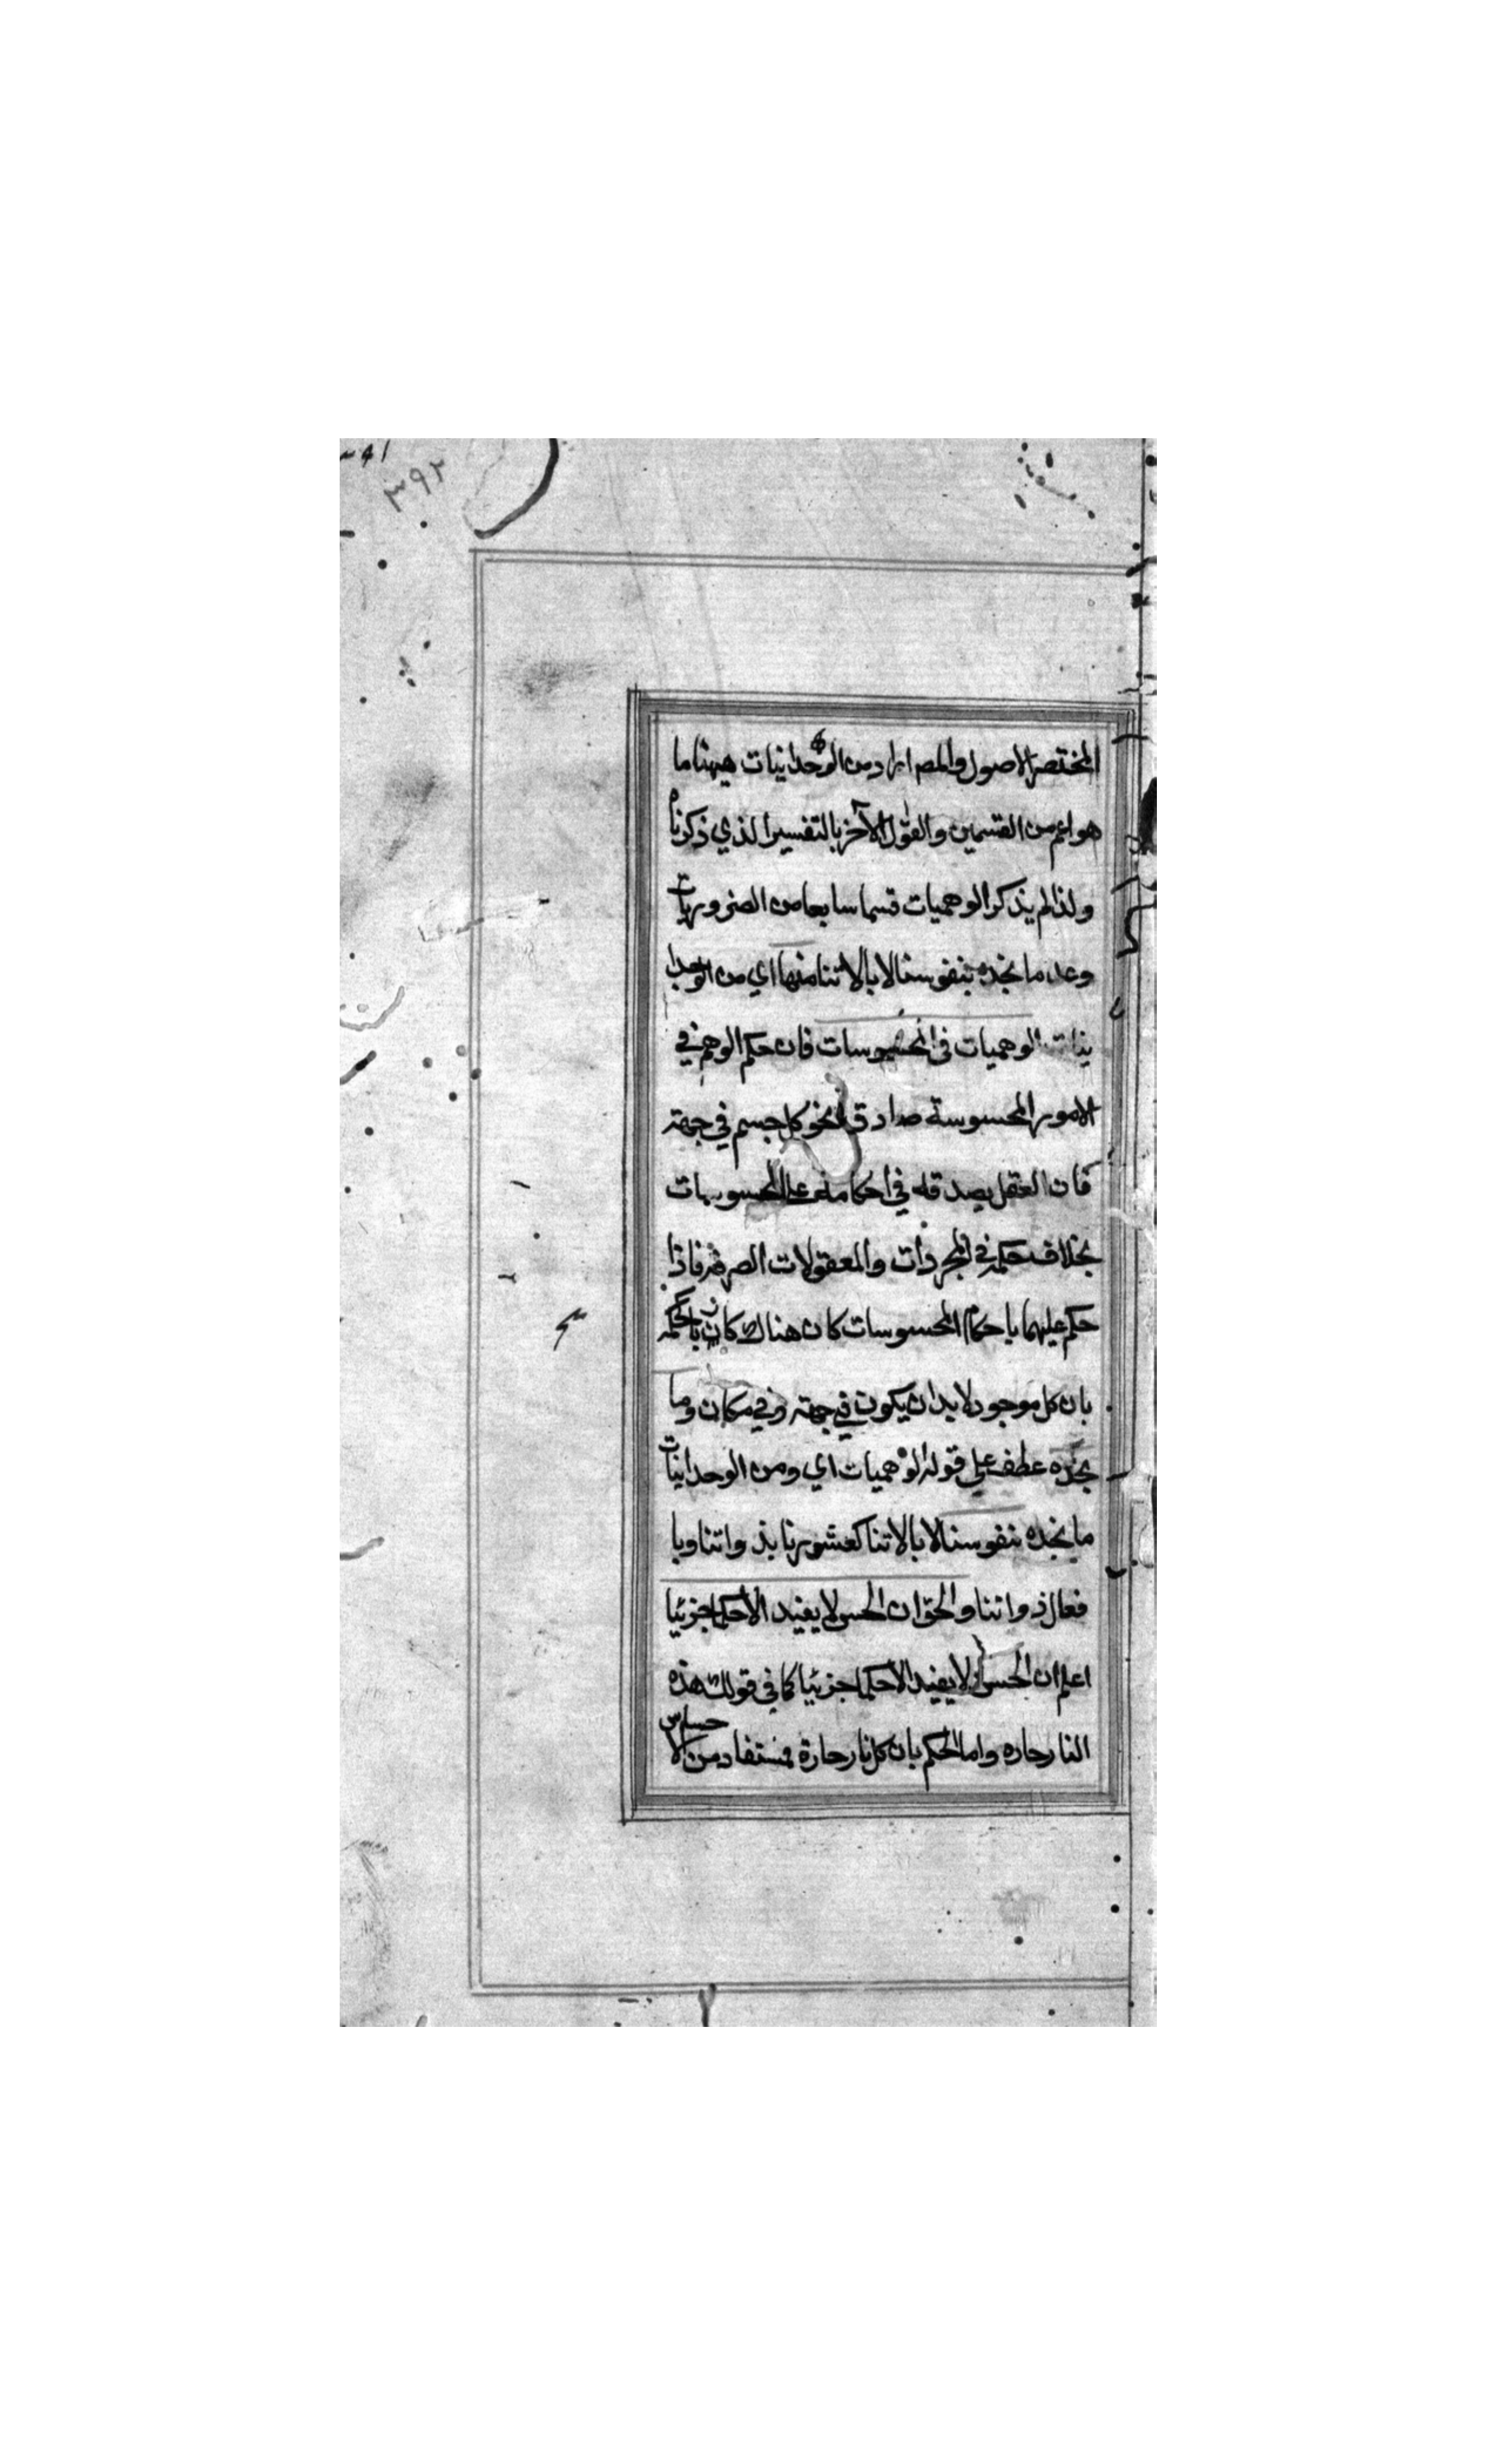 ٣٩٢
المختصر الاصول والمصـ اراد من الوحدانيات ههنا ما
هو اعم من القسمين والقول الآخر بالتفسير الذي ذكرناه
ولذا لم يذكر الوهميات قسما سابعا من الضروريات
وعد ما نجده بنفوسنا لا بالاتنا منها اي من الوجدا
نيات الوهميات في المحسوسات فان حكم الوهم في
الامور المحسوسة صادق نحو كل جسم في جهته
فان العقل يصدقه في احكامه على المحسوسات
بخلاف حكمه في المجردات والمعقولات الصرفة فاذا
حكم عليهما باحكام المحسوسات كان هناك كاذبا كحكمه
بان كل موجود لا بد ان يكون في جهته وفي مكان وما
نجده عطف علي قوله الوهميات اي ومن الوحدانيات
ما نجده بنفوسنا لا بالاتنا كعشورنا بذواتنا وبا
فعال ذواتنا والحق ان الحس لا يفيد الا حكما جزئيا
اعلم ان الحس لا يفيد الا حكما جزئيا كما في قولك هذه
النار حاره واما الحكم بان كل نار حارة فمستفاد من الاحساس